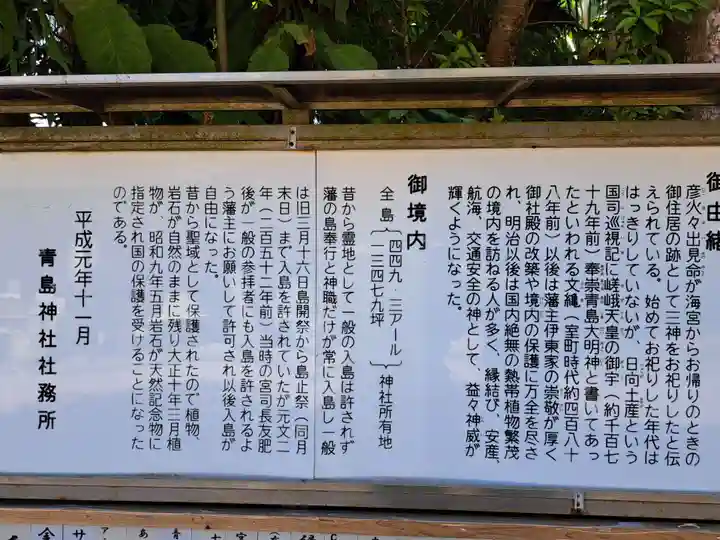 御由緒
彦火々出見命が海宮からお帰りのときの
御住居の跡として三神をお祀りしたと伝
えられている。始めてお祀りした年代は
はっきりしていないが、日向土産という
国司巡視記に嵯峨天皇の御宇（約千百七
十九年前）奉崇青島大明神と書いてあっ
たといわれる文縄（室町時代約四百八十
八年前）以後は藩主伊東家の崇敬が厚く
御社殿の改築や境内の保護に万全を尽さ
れ、明治以後は国内絶無の熱帯植物繁茂
の境内を訪ねる人が多く、縁結び、安産、
航海、交通安全の神として、益々神威が
輝くようになった。
御境内
全島
四四九・三アール
一三四七九坪
神社所有地
昔から霊地として一般の入島は許されず
藩の島奉行と神職だけが常に入島し一般
は旧三月十六日島開祭から島止祭（同月
末日）まで入島を許されていたが元文二
年（二百五十二年前）当時の宮司長友肥
後が一般の参拝者にも入島を許されるよ
う藩主にお願いして許可され以後入島が
自由になった。
昔から聖域として保護されたので植物、
岩石が自然のままに残り大正十年三月植
物が、昭和九年五月岩石が天然記念物に
指定され国の保護を受けることになった
のである。
平成元年十一月
青島神社社務所